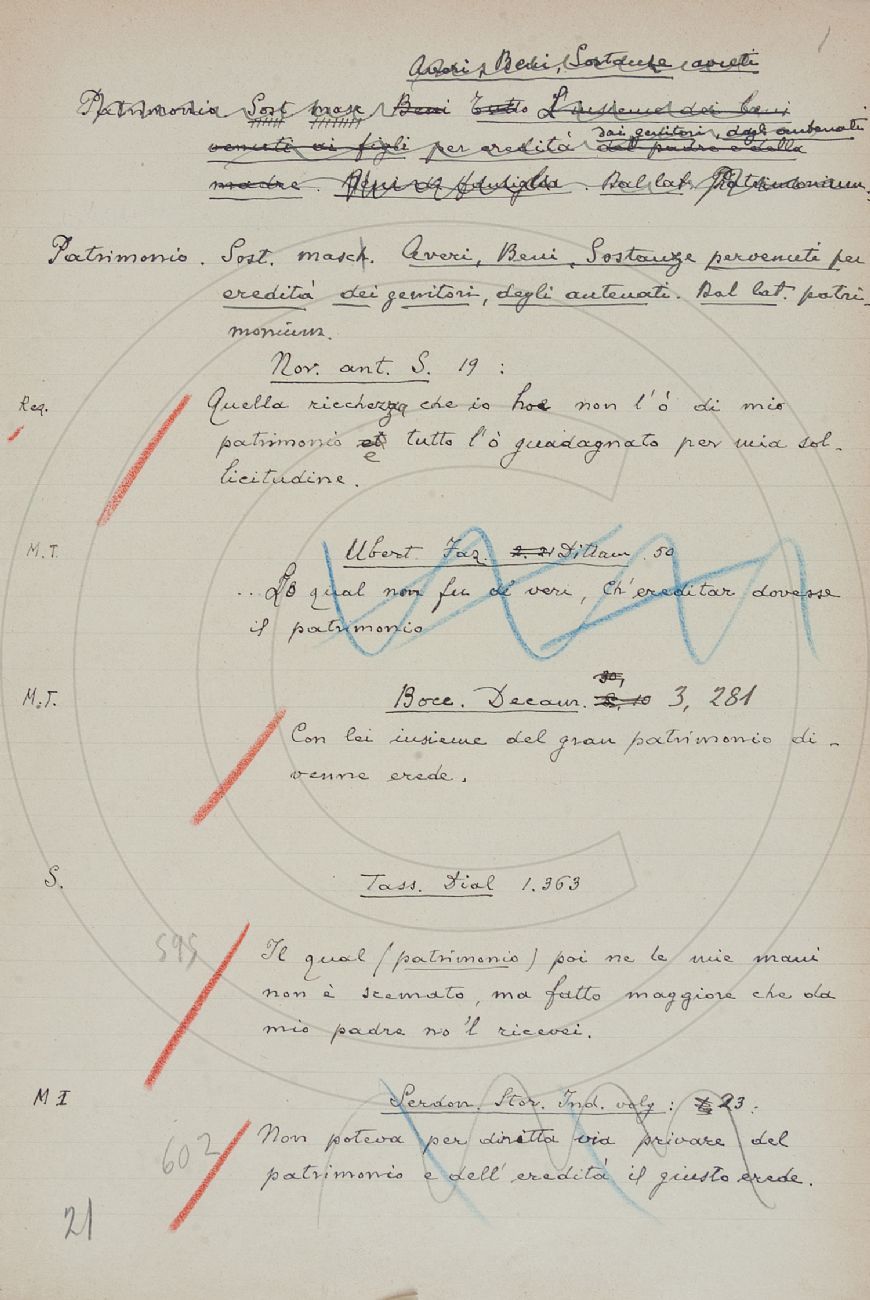 Averi, Beni, Sostanze aviti
Patrimonio Sost masc Beni Tutto L'insieme dei beni
dai genitori, degli antenati
venuti ai figli per eredità dal padre e dalla
madre. Beni di famiglia. Dal lat. Patrimonium.
Patrimonio. Sost. masch. Averi, Beni, Sostanze pervenuti per
eredità dei genitori, degli antenati. Dal lat. patri-
monium.
Nov. ant. S. 19 :
Reg.
Quella ricchezza che io hoe non l'ò di mio
patrimonio et e tutto l'ò guadagnato per mia sol-
licitudine.
M.T.
Ubert. Faz. 2. 21 Dittam. 50
... Lo qual non fu di veri, Ch'ereditar dovesse
il patrimonio
M.T.
Bocc. Decam. 3, 281
Con lei insieme del gran patrimonio di-
venne erede.
S.
Tass. Dial 1.363
595
Il qual (patrimonio) poi ne le mie mani
non è scemato, ma fatto maggiore che da
mio padre no 'l ricevei.
M I
Serdon. Stor. Ind. volg : 23.
602
Non poteva per diretta via privare del
patrimonio e dell' eredità il giusto erede.
21